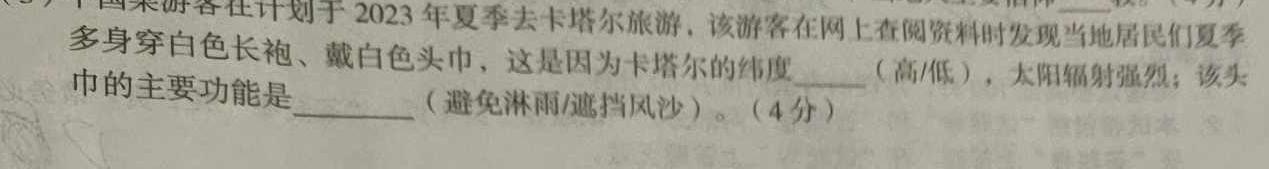 中国某游客在计划于2023年夏季去卡塔尔旅游，该游客在网上查阅资料时发现当地居民们夏季
多身穿白色长袍、戴白色头巾，这是因为卡塔尔的纬度______（高/低），太阳辐射强烈；该头
巾的主要功能是________（避免淋雨/遮挡风沙）。（4分）